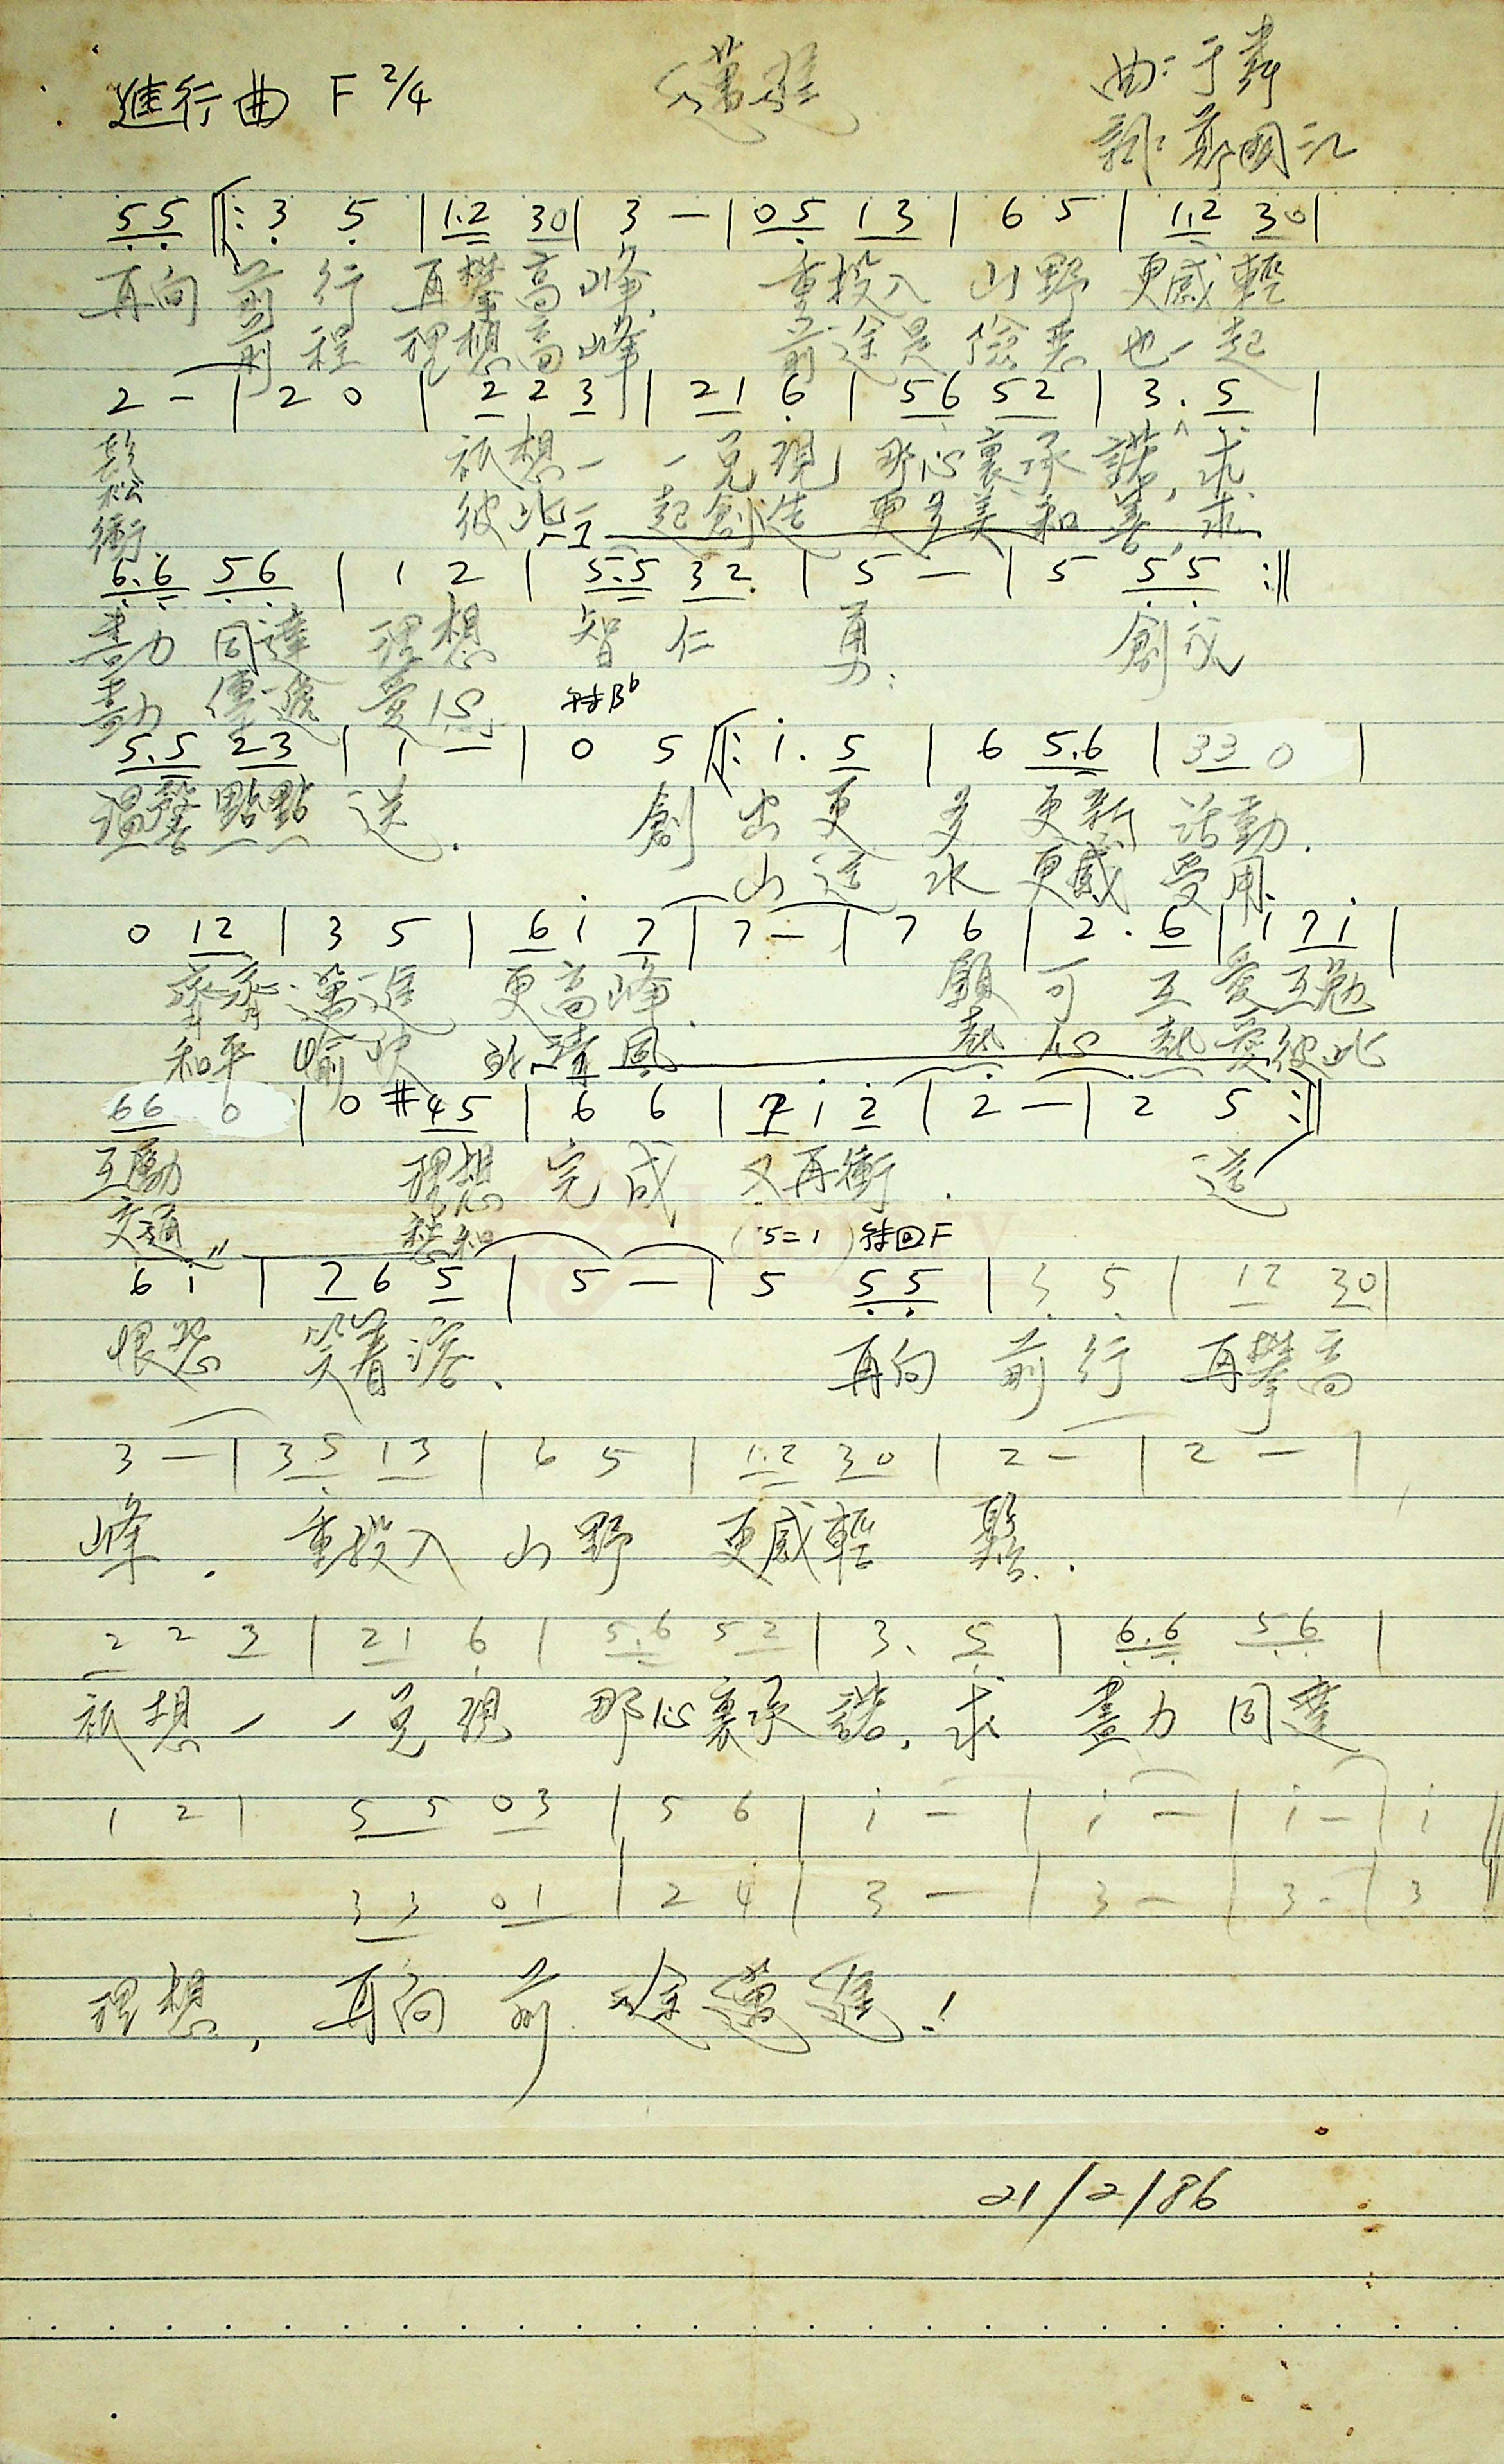 進行曲 F 2/4
邁進
曲：于粦
詞：鄭國江
5 5 ‖: 3 5 | 1.2 30 | 3 — | 05 13 | 6 5 | 1.2 30 |
再向前行再攀高峰 重投入山野更感輕
前程理想高峰 前途是險惡也一起
2 — | 2 0 | 2 2 3 | 21 6 | 56 52 | 3. 5 |
鬆 祇想一一兌現那心裏承諾，求
衝 彼此一起創造更多美和善，求
I
6.6 56 | 1 2 | 5.5 32 | 5 — | 5 55 :‖
盡力同達理想智仁勇 創成
盡力傳遞愛心 轉Bb
5.5 23 | 1 — | 0 5 ‖: i. 5 | 6 5.6 | 33 0 |
溫馨點點送. 創出更多更新活動.
山途水更感受用.
0 12 | 3 5 | 6 i 7 | 7 — | 7 6 | 2. 6 | i 7i |
齊齊邁進更高峰. 願可互愛互勉
和平愉快 清風 熱心熱愛彼此
66 0 | 0 #45 | 6 6 | 7 i 2 | 2 — | 2 5 :‖
互勵 理想完成又再衝.
交通 (5=1) 轉回F
II
6 i | 7 6 5 | 5 — | 5 55 | 3 5 | 12 30 |
恨怨笑着溶. 再向前行再攀高
3 — | 35 13 | 6 5 | 1.2 30 | 2 — | 2 — |
峰. 重投入山野更感輕鬆.
2 2 3 | 21 6 | 5.6 52 | 3. 5 | 6.6 56 |
祇想一一兌現那心裏承諾，求盡力同達
1 2 | 5 5 03 | 5 6 | i — | i — | i — | i ‖
3 3 01 | 2 4 | 3 — | 3 — | 3 - | 3 ‖
理想，再向前途邁進！
21/2/86